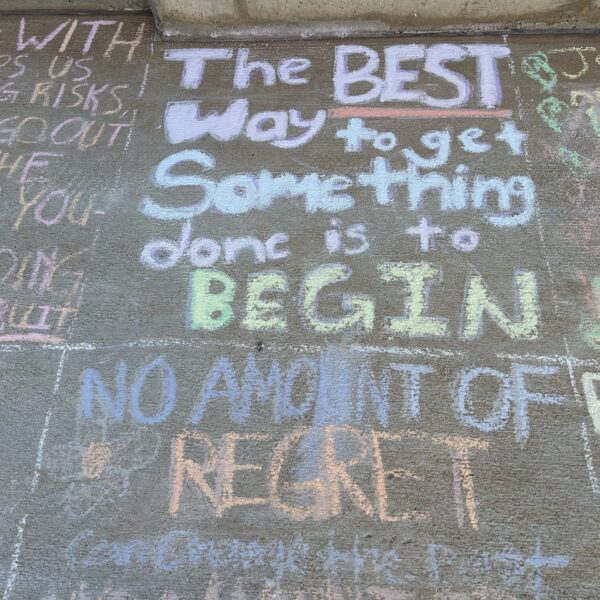 WITH
US
RISKS,
OUT
HE
YOU-
ING
UIT
The BEST
Way to get
Something
done is to
BEGIN
NO AMOUNT OF
REGRET
Can Change the Past